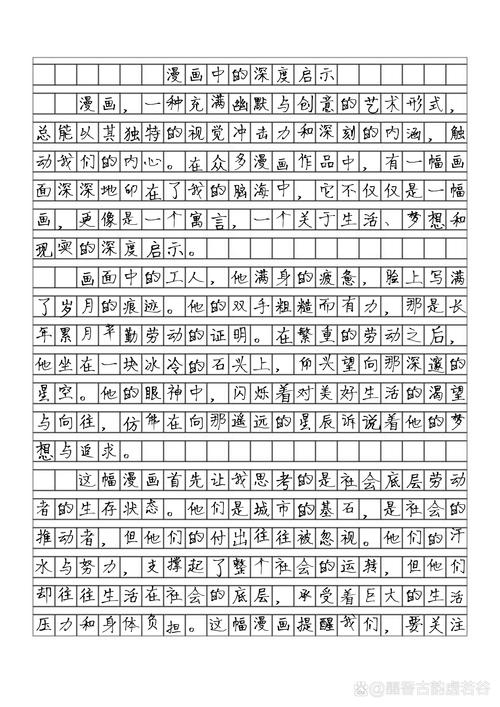 漫画中的深度启示
漫画，一种充满幽默与创意的艺术形式，
总能以其独特的视觉冲击力和深刻的内涵，触
动我们的内心。在众多漫画作品中，有一幅画
面深深地印在了我的脑海中，它不仅仅是一幅
画，更像是一个寓言，一个关于生活、梦想和
现实的深度启示。
画面中的工人，他满身的疲惫，脸上写满
了岁月的痕迹。他的双手粗糙而有力，那是长
年累月辛勤劳动的证明。在繁重的劳动之后，
他坐在一块冰冷的石头上，仰头望向那深邃的
星空。他的眼神中，闪烁着对美好生活的渴望
与向往，仿佛在向那遥远的星辰诉说着他的梦
想与追求。
这幅漫画首先让我思考的是社会底层劳动
者的生存状态。他们是城市的基石，是社会的
推动者，但他们的付出往往被忽视。他们的汗
水与努力，支撑起了整个社会的运转，但他们
却往往生活在社会的底层，承受着巨大的生活
压力和身体负担。这幅漫画提醒我们，要关注